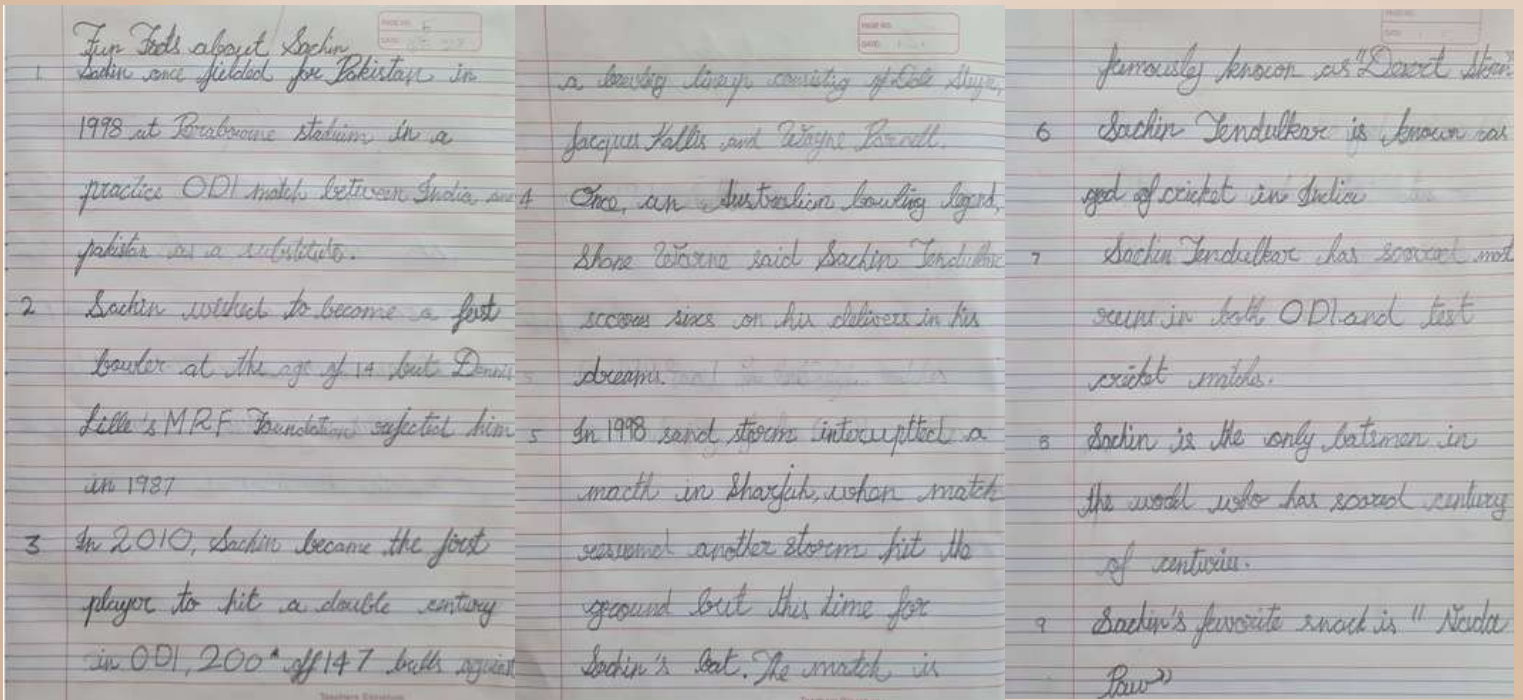 PAGE NO. 6
DATE
Fun Facts about Sachin
1 Sachin once fielded for Pakistan in
1998 at Brabourne stadium in a
practice ODI match between India and
pakistan as a substitute.
2 Sachin wished to become a fast
bowler at the age of 14 but Dennis
Lille's MRF Foundation rejected him
in 1987
3 In 2010, Sachin became the first
player to hit a double century
in ODI, 200* off 147 balls against
Teachers Signature
PAGE NO.
DATE:
a bowling lineup consistig of Dale Steyn,
Jacques Kallis and Wayne Parnell.
4 Once, an Australian bowling legnd,
Shane Warne said Sachin Tendulkar
scores sixes on his delivers in his
dreams.
5 In 1998 sand storm interuptted a
macth in Sharjah, when match
resumed another storm hit the
ground but this time for
Sachin's bat. The match is
Teachers Signature
PAGE NO.
DATE:
famously known as "Desert Storm"
6 Sachin Tendulkar is known as
god of cricket in India
7 Sachin Tendulkar has scored most
runs in both ODI and test
cricket matchs.
8 Sachin is the only batsmen in
the world who has scored century
of centuries.
9 Sachin's favorite snack is "Vada
Paw"